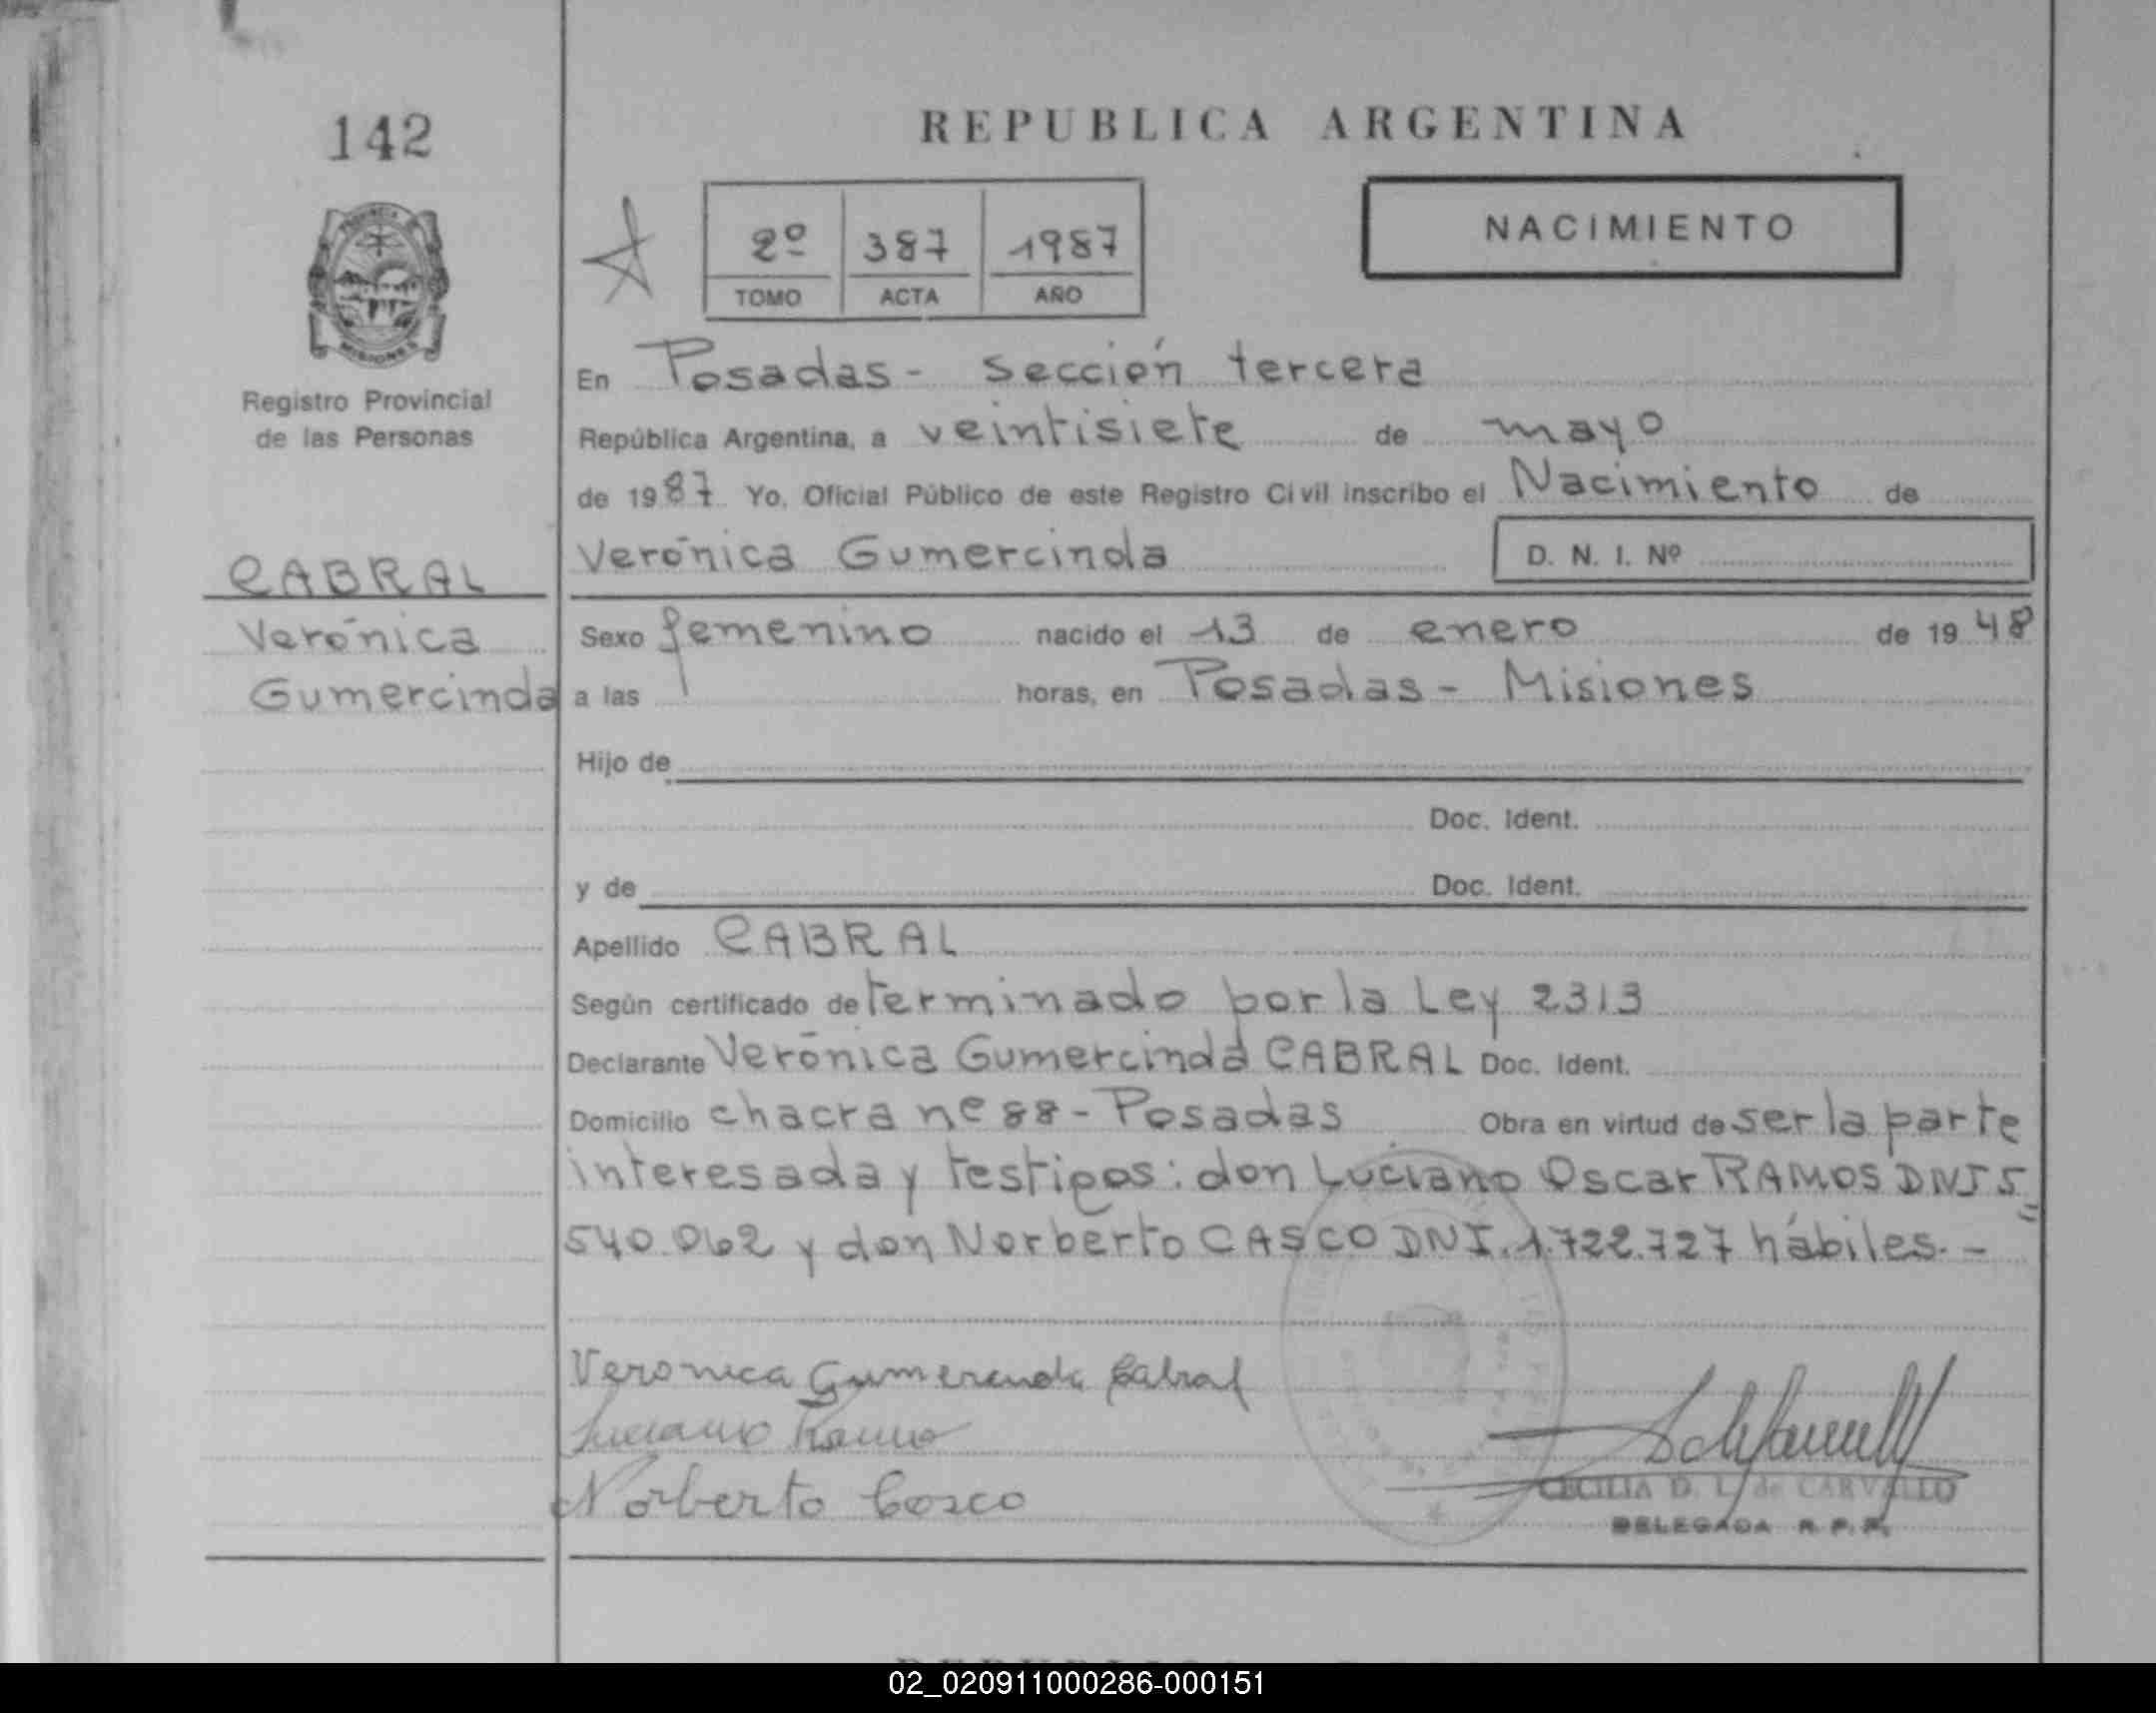 142
REPUBLICA ARGENTINA
2º 387 1987
TOMO ACTA AÑO
NACIMIENTO
MISIONES
Registro Provincial
de las Personas
CABRAL
Verónica
Gumercinda
En Posadas - Sección tercera
República Argentina, a veintisiete de mayo
de 1987 Yo, Oficial Público de este Registro Civil inscribo el Nacimiento de
Verónica Gumercinda D. N. I. Nº
Sexo femenino nacido el 13 de enero de 1948
a las horas, en Posadas - Misiones
Hijo de
Doc. Ident.
y de Doc. Ident.
Apellido CABRAL
Según certificado determinado por la Ley 2313
Declarante Verónica Gumercinda CABRAL Doc. Ident.
Domicilio chacra nº 88 - Posadas Obra en virtud de ser la parte
interesada y testigos: don Luciano Oscar RAMOS DNI 5=
540.062 y don Norberto CASCO DNI. 1.722.727 hábiles. -
Veronica Gumercinda Cabral
Luciano Ramos
Norberto Casco
CECILIA D. L. de CARVALLO
DELEGADA R. P. P.
02_020911000286-000151